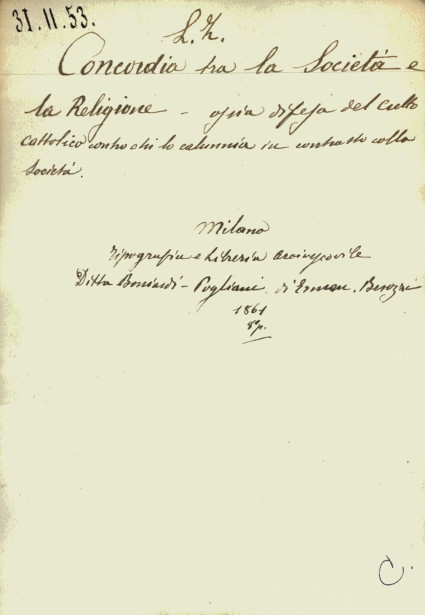 31.11.53.
L. Z.
Concordia tra la Società e
la Religione – ossia difesa del culto
cattolico contro chi lo calunnia in contrasto colla
Società.
Milano
Tipografia e Libreria Arcivescovile
Ditta Boniardi-Pogliani di Ermen. Besozzi
1861
8º p.
C.